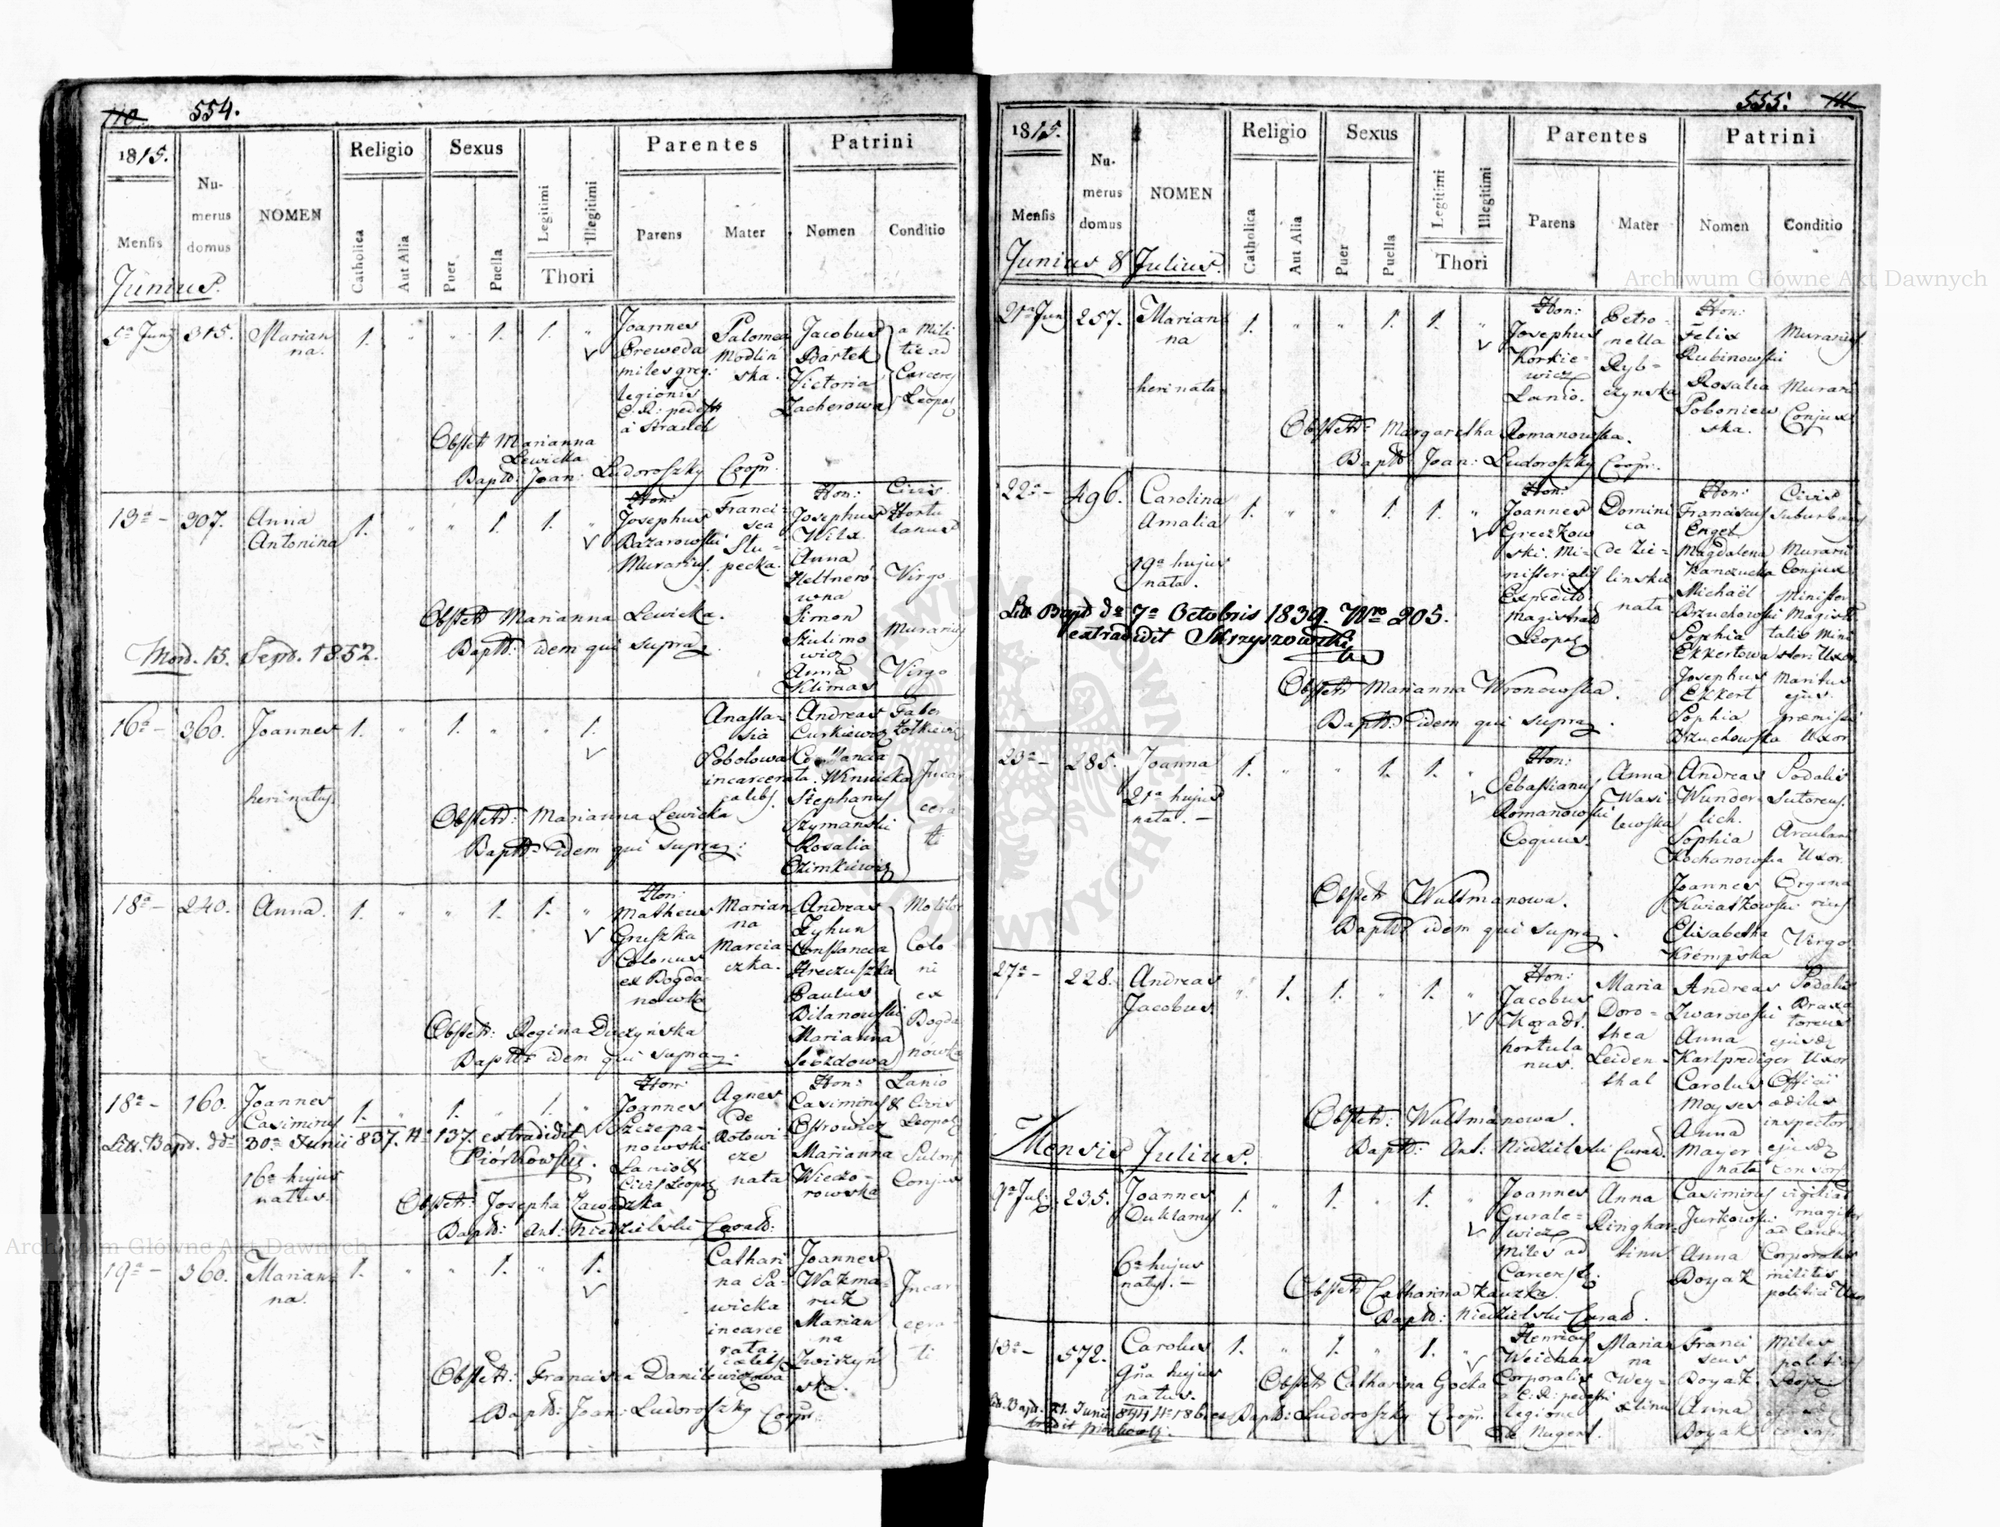 110 554.
1815.
Mensis
Junius.
Numerus domus
NOMEN
Religio
Catholica
Aut Alia
Sexus
Puer
Puella
Legitimi
Illegitimi
Thori
Parentes
Parens
Mater
Patrini
Nomen
Conditio
5ta Junj 315. Marianna. 1. " " 1. 1. "
Joannes
Breweda
miles greg:
legionis
Palomea
Modlin
ska.
Jacobus
Bartek
Victoria
Zacherowa
a Mili
tie ad
Carceres
Leopol
Obstetr: Marianna
Lewicka
Bapt: Joan: Ludoroszky Coopr.
13a - 307. Anna
Antonina 1. " " 1. 1. "
Hon:
Josephus
Bazarowski
Murarius.
Franci-
sca
Stu-
pecka.
Hon:
Josephus
Wilx.
Anna
Neltneró
wna
Simon
Szulimo
wicz
Anna
Klimas
Civis
Hortu
lanus
Virgo
Murarius
Virgo
Obstetr: Marianna Lewicka.
Bapt: idem qui supra.
Mord. 15. Sept. 1852.
16a - 360. Joannes 1. " 1. " " 1.
heri natus.
Anasta-
sia
Pobolowa
incarcerata.
Andreas
Curkiewicz
Constancia
Winnicka
Stephanus
Szymanski
Rosalia
Czimkiewicz
Faber
Zolkiew
Incar
cera
ti
Obstetr: Marianna Lewicka
Bapt: idem qui supra.
18a - 240. Anna. 1. " " 1. 1. "
Hon:
Matheus
Gruszka
Colonus
ex Bogda
nowka
Marian
na
Marcia-
czka.
Andreas
Zyhun
Constancia
Hreczuszka
Paulus
Bilanowski
Marianna
Seizdowa
Molitor
Colo
ni
ex
Bogda
nowka
Obstetr: Regina Duczyńska
Bapt: idem qui supra.
18a - 160. Joannes
Casimirus 1. " 1. " 1. "
Litt. Bapt. dd: 20a Junii 837. No 137. extradidit
Piórkowski.
16a hujus
natus.
Hon:
Joannes
Szczepa-
nowski
Lanio &
Civis Leopol
Agnes
de
Rotowi-
cze
nata
Hon:
Casimirus
Ostrowicz
Marianna
Wieczo-
rowska
Lanio
& Civis
Leopol
Sutoris
Conjux
Obstetr: Josepha Zawadzka
Bapt: Ant: Niedzielski Curat:
19a - 360. Marian-
na. 1. " " 1. " 1.
Cathari
na Sa-
wicka
incarce
rata.
Joannes
Wakma-
ruk
Marian
na
Zwirzyń
ska.
Incar
cera-
ti
Obstetr: Francisca Danilewiczowa
Bapt: Joan: Ludoroszky Coopr.
555. 111
1815.
Mensis
Junius & Julius.
Numerus domus
NOMEN
Religio
Catholica
Aut Alia
Sexus
Puer
Puella
Legitimi
Illegitimi
Thori
Parentes
Parens
Mater
Patrini
Nomen
Conditio
21a Junj 257. Marian
na 1. " " 1. 1. "
heri nata.
Hon:
Josephus
Korkie-
wicz
Lanio.
Petro-
nella
Ryb-
czynska
Hon:
Felix
Rubinowski
Rosalia
Poboniew
ska.
Murarius
Murarii
Conjux
Obstetr: Margaretha Romanowska.
Bapt: Joan: Ludoroszky Coopr.
22a - 496. Carolina
Amalia 1. " " 1. 1. "
19a hujus
nata.
Litt. Bapt. dd 7a Octobris 1839. Nro 205.
extradidit Skrzyszowski
Hon:
Joannes
Greczkow
ski. Mi-
nisterialis
Expedit
magistrat
Leopol
Domini
ca
de Zie-
linskie
nata
Hon:
Franciscus
Engel
Magdalena
Kanczucka
Michaël
Brzuchowski
Sophia
Ekkertowa
Josephus
Ekkert
Sophia
Brzuchowska
Civis
Suburbanus
Murarii
Conjux
Minister
Magist
Uxor
Maritus
ejus.
præmissi
Uxor
Obstetr: Marianna Wronowska.
Bapt: idem qui supra.
23a - 285. Joanna 1. " " 1. 1. "
21a hujus
nata. -
Hon:
Sebastianus
Romanowski
Coquus.
Anna
Wasi-
lewska
Andreas
Wunder-
lich.
Sophia
Kochanowska
Joannes
Kwiatkowski
Elisabetha
Krempska
Sodalis
Sutoreus.
Arcularii
Uxor.
Organa
rius
Virgo
Obstetr: Wultmanowa.
Bapt: idem qui supra.
27a - 228. Andreas
Jacobus " 1. 1. " 1. "
Hon:
Jacobus
Konradt.
hortula
nus.
Maria
Doro-
thea
Leiden-
thal
Andreas
Zwarowski
Anna
Karlprediger
Carolus
Moyses
Anna
Mayer
nata
Sodalis
Braxa
toreus
ejusd:
Uxor
Officii
ædilis
inspector
ejusd:
consors
Obstetr: Wultmanowa.
Bapt: Ant: Niedzielski Curat.
Mensis Julius.
9a Julj. 235. Joannes
Duklanus 1. " 1. " 1. "
6a hujus
natus. -
Joannes
Gurale-
wicz
Miles ad
Carceres
Anna
Ringhar-
tinn
Casimirus
Jurkowski
Anna
Boyak
vigiliar
magister
Corporalis
militis
politici Uxor
Obstetr: Catharina Kauzka.
Bapt: Niedzielski Curat.
13a - 572. Carolus 1. " 1. " 1. "
hujus
natus.
Henricus
Weichan
Corporalis
legione
de Nugent.
Marian
na
Wey-
xlinn
Franci
scus
Boyak.
Anna
Boyak
Miles
politicus
Leopol
Obstetr: Catharina Gocka
Bapt: Ludoroszky Coopr.